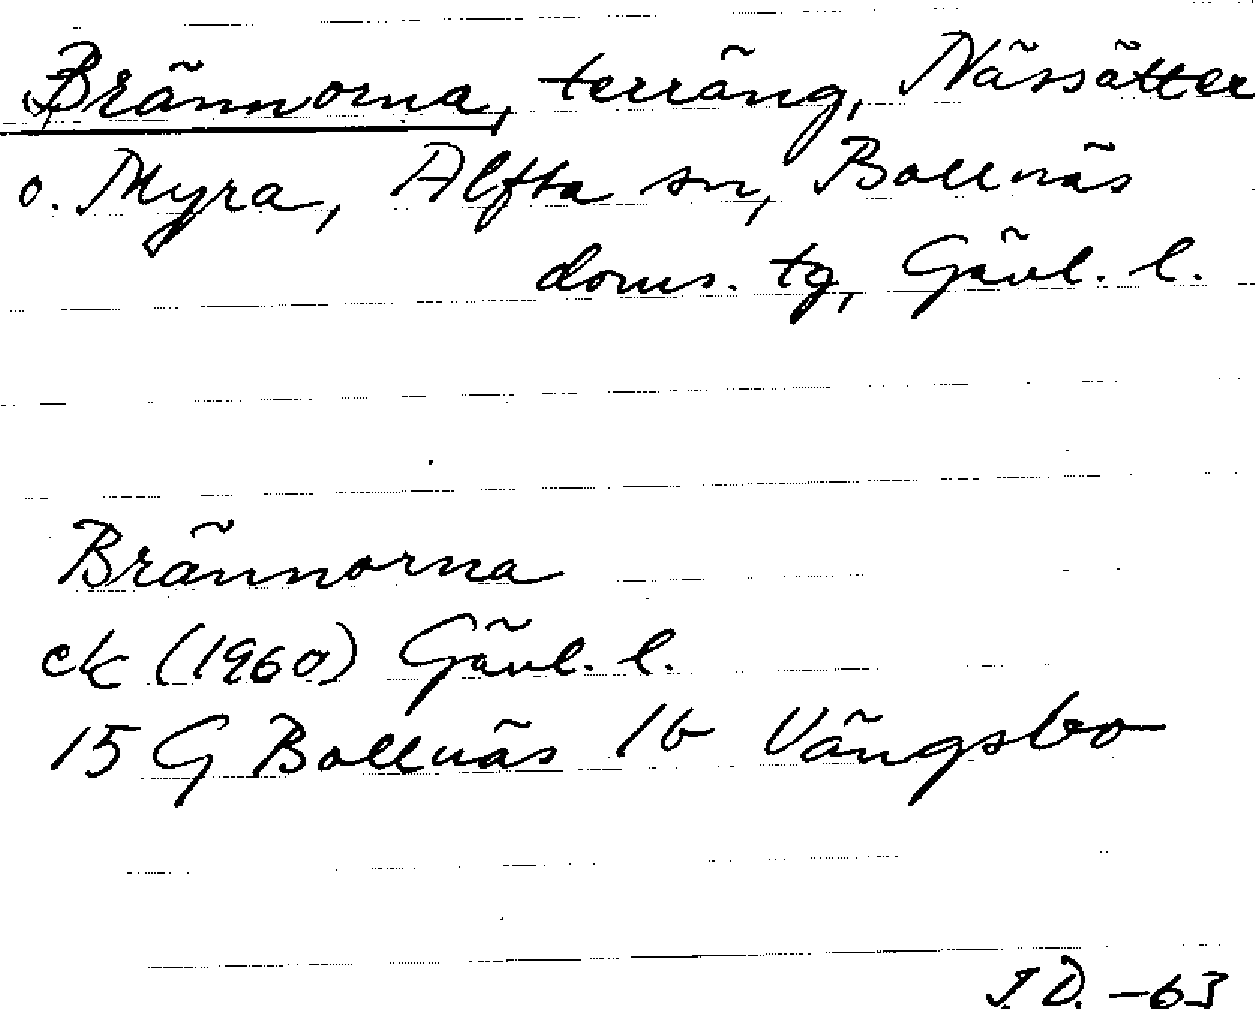 Brännorna, terräng, Nässätter
o. Myra, Alfta sn, Bollnäs
doms. tg, Gävl. l.
Brännorna
ek (1960) Gävl. l.
15 G Bollnäs 1b Vängsbo
J.D. -63